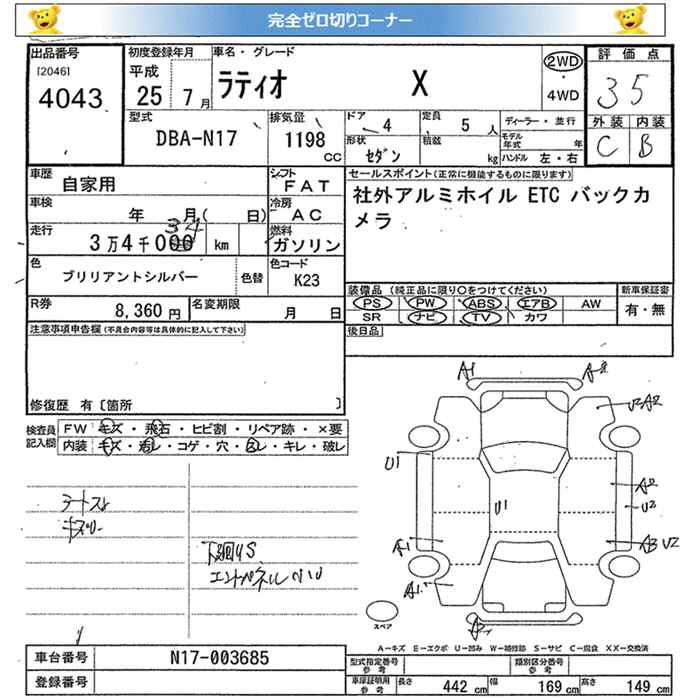 完全ゼロ切りコーナー
出品番号 初度登録年月 車名・グレード 評価点
[2046] 平成 ラティオ X 2WD ・ 4WD 3 5
4043 25 7月
型式 排気量 ドア 定員 ディーラー・並行 外装 内装
DBA-N17 1198 CC 4 5 人 モデル年式 年 C B
形状 積載
セダン kg ハンドル 左・右
車歴 自家用 シフト FAT セールスポイント(正常に機能するものに限ります)
車検 年 月( 日) 冷房 AC 社外アルミホイル ETC バックカ
メラ
走行 3万4千000 34 km 燃料 ガソリン
色 ブリリアントシルバー 色替 色コード K23
装備品 (純正品に限り○をつけてください) 新車保証書
PS PW ABS エアB AW 有・無
SR ナビ TV カワ
R券 8,360 円 名変期限 月 日
注意事項申告欄(不具合内容等は具体的に記入して下さい) 後日品
修復歴 有〔箇所 〕
検査員記入欄 FW キズ・飛石・ヒビ割・リペア跡・×要
内装 キズ・汚レ・コゲ・穴・スレ・キレ・破レ
A1
U2 A2
U1
U1
A2
U2
A1
A3 U2
A1
スペア
A-キズ E-エクボ U-凹み W-補修跡 S-サビ C-腐食 XX-交換済
車台番号 N17-003685
登録番号
型式指定番号 参考 類別区分番号 参考
車庫証明用 参考 長さ 442 cm 幅 169 cm 高さ 149 cm